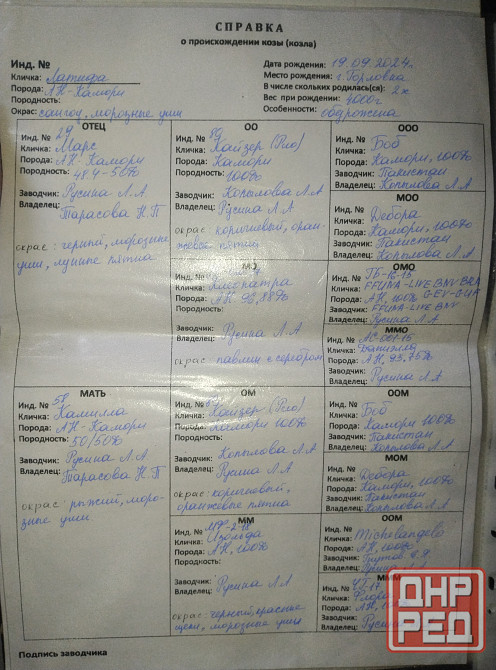 СПРАВКА
о происхождении козы (козла)
Инд. №
Кличка: Латифа
Порода: АН-Камори
Породность:
Окрас: сангоу, морозные уши
Дата рождения: 19.09.2024г.
Место рождения: г. Горловка
В числе скольких родилась(ся): 2х
Вес при рождении: 4000г
Особенности:
ОТЕЦ
Инд. № 29
Кличка: Марс
Порода: АН Камори
Породность: 48.4-50%
Заводчик: Русина Л.А
Владелец: Тарасова Н.П
окрас: черный, морозные
уши, лунные пятна
ОО
Инд. №
Кличка: Кайзер (Рло)
Порода: Камори
Породность: 100%
Заводчик: Копылова Л.А
Владелец: Русина Л.А
окрас коричневый, оран-
жевые пятна
ООО
Кличка: Боб
Порода: Камори, 100%
Заводчик: Пакистан
Владелец: Копылова Л.А
МОО
Инд. №
Кличка: Дебора
Порода: Камори, 100%
Заводчик: Пакистан
Владелец: Копылова Л.А
МО
Инд. №
Кличка: Клеопатра
Порода: АН
Породность:
Заводчик: Русина Л.А
Владелец:
окрас: павлин с серебром
ОМО
Инд. №
Кличка:
Порода: АН, 100%
Заводчик:
Владелец: Русина Л.А
ММО
Инд. №
Кличка:
Порода: АН, 93.75%
Заводчик: Русина Л.А
Владелец:
МАТЬ
Инд. № 58
Кличка: Камилла
Порода: АН-Камори
Породность: 50/50%
Заводчик: Русина Л.А
Владелец: Тарасова Н.П
окрас: рыжий, моро-
зные уши
ОМ
Инд. №
Кличка: Кайзер (Рло)
Порода: Камори 100%
Породность:
Заводчик: Копылова Л.А
Владелец: Русина Л.А
окрас: коричневый,
оранжевые пятна
ООМ
Инд. №
Кличка: Боб
Порода: Камори 100%
Заводчик: Пакистан
Владелец: Копылова Л.А
МОМ
Инд. №
Кличка: Дебора
Порода: Камори, 100%
Заводчик: Пакистан
Владелец: Копылова Л.А
ММ
Инд. №
Кличка: Изольда
Порода: АН, 100%
Породность:
Заводчик: Русина Л.А
Владелец:
окрас: черный, красные
щеки, морозные уши
ООМ
Инд. №
Кличка: Michelangelo
Порода: АН, 100%
Заводчик:
Владелец: Русина Л.А
МММ
Инд. №
Кличка: Флора
Порода: АН,
Заводчик: Русина
Владелец:
Подпись заводчика
ДНР
РЕД